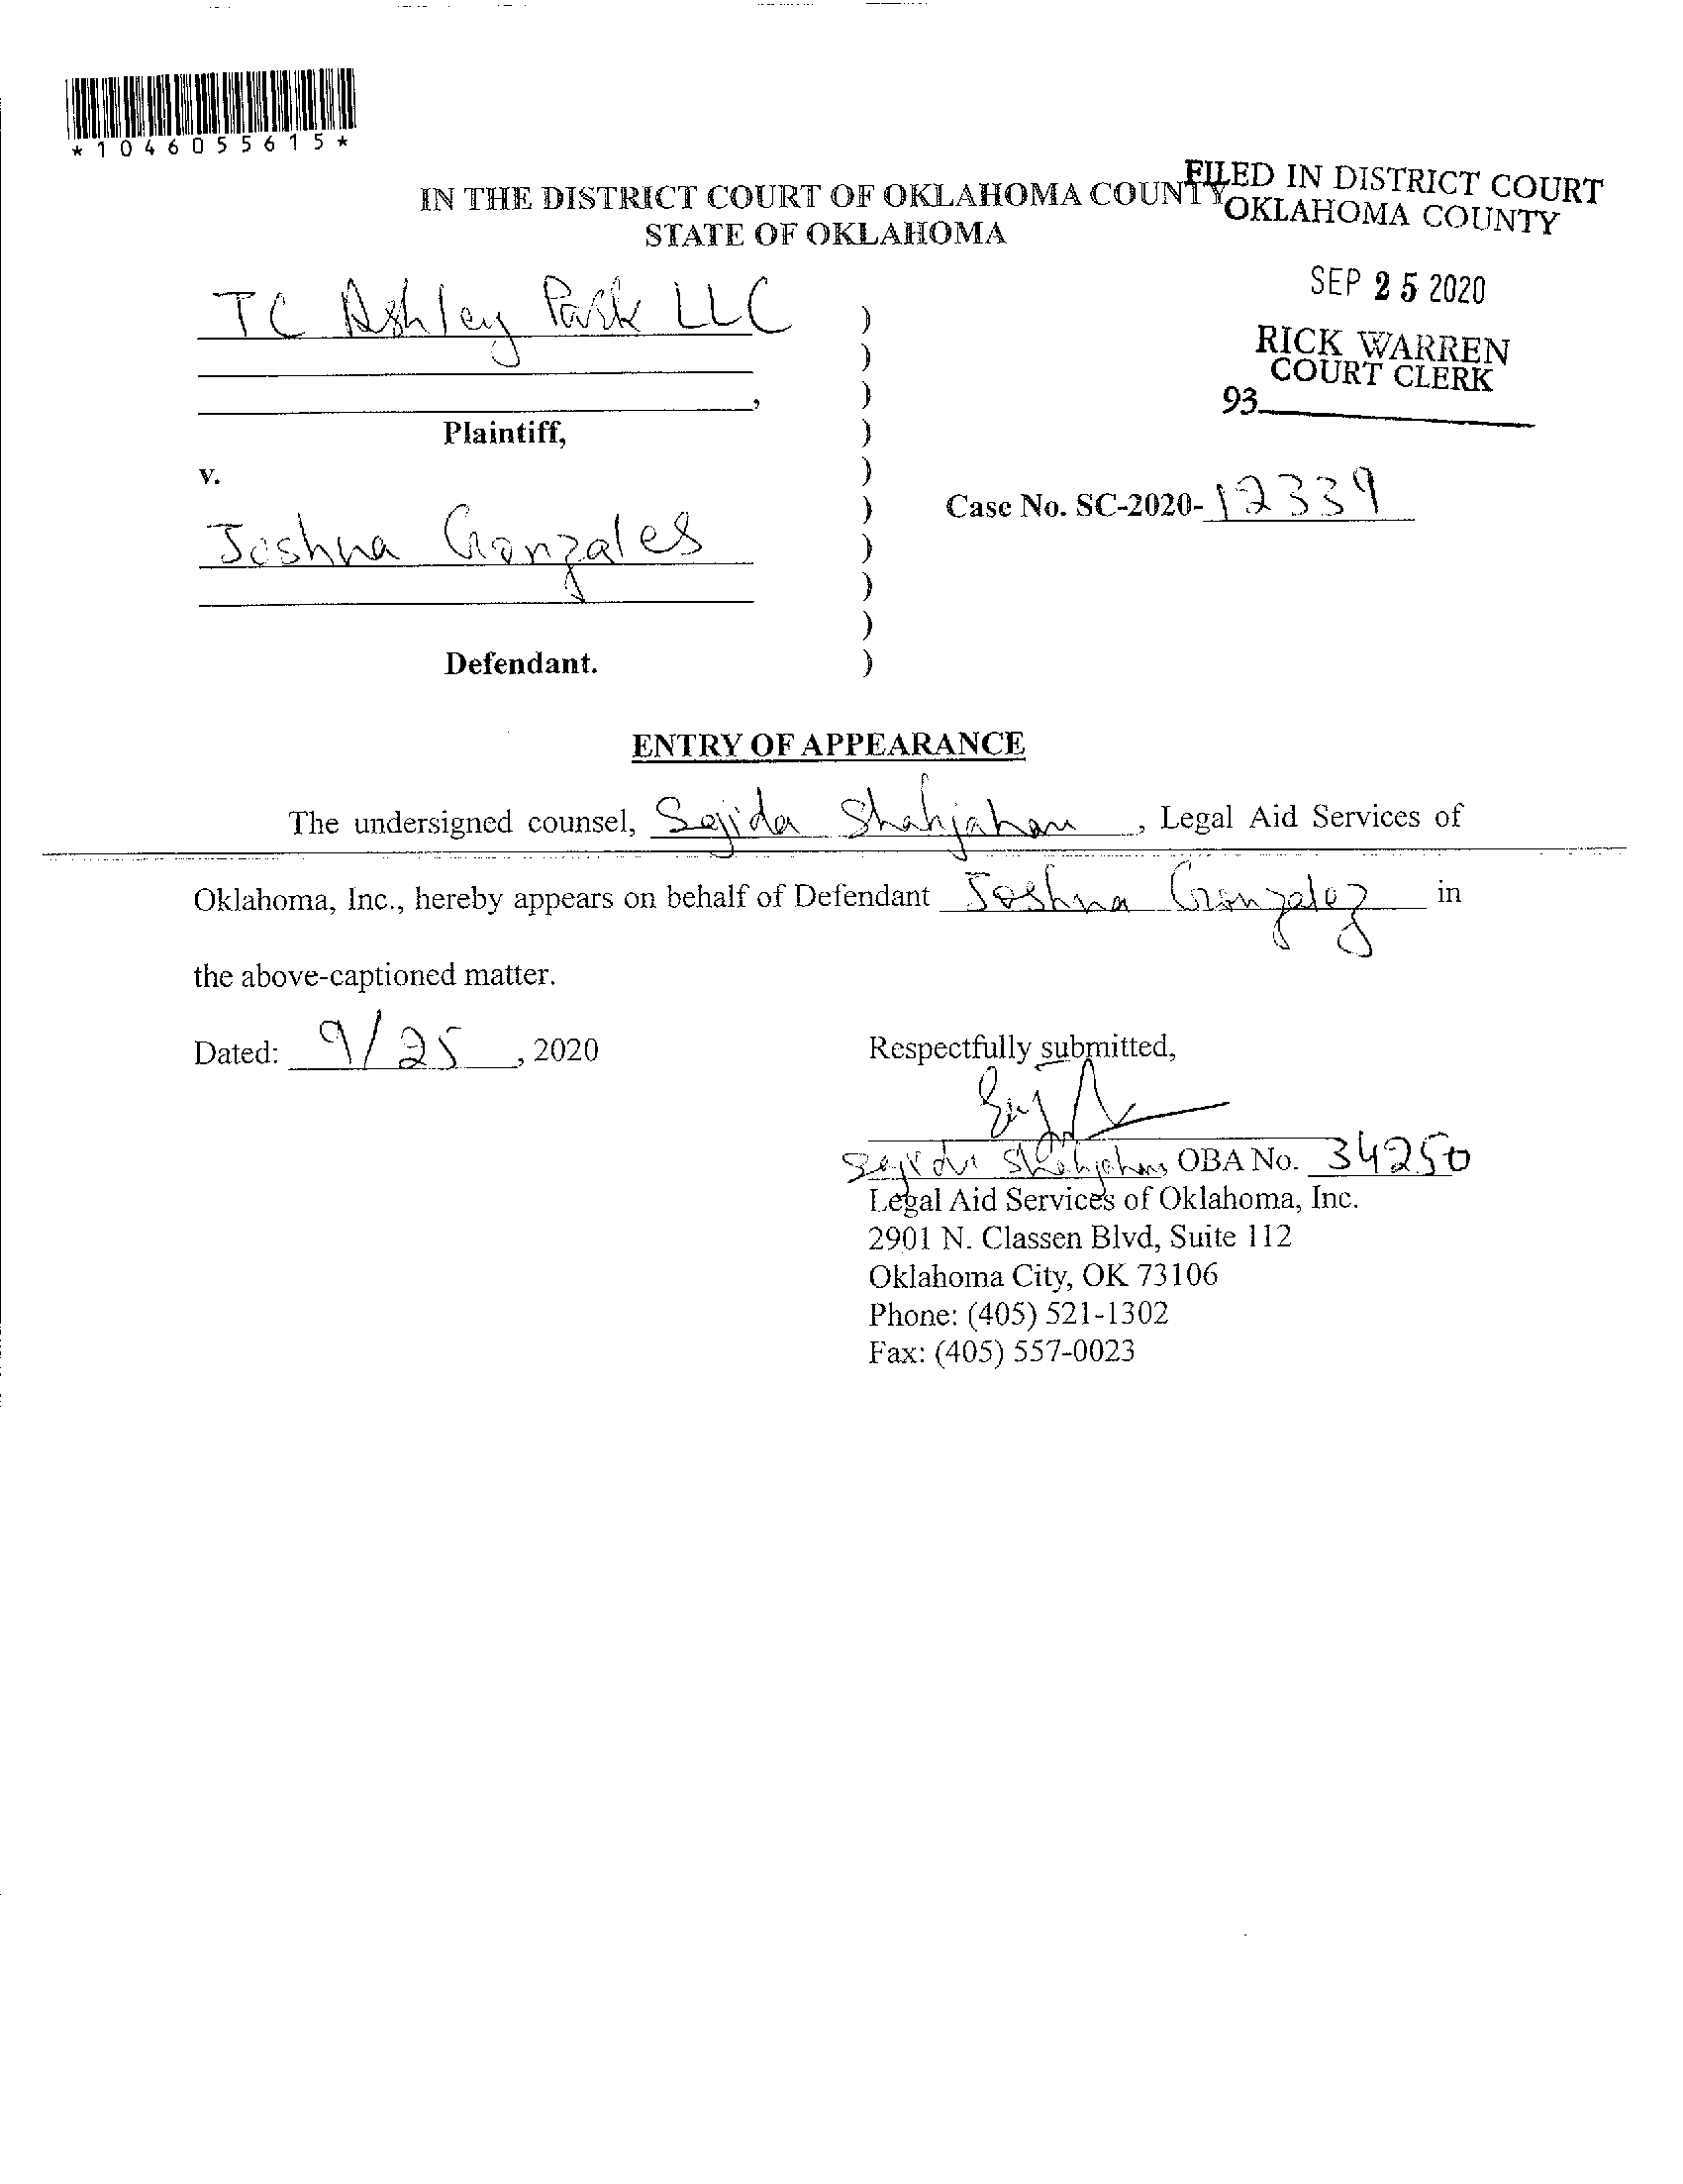 *1046055615*
IN THE DISTRICT COURT OF OKLAHOMA COUNTY
STATE OF OKLAHOMA
FILED IN DISTRICT COURT
OKLAHOMA COUNTY
SEP 25 2020
RICK WARREN
COURT CLERK
93
TC Ashley Park LLC )
)
, )
Plaintiff, )
v. )
Case No. SC-2020-12339
)
Joshua Gonzales )
)
)
Defendant. )
ENTRY OF APPEARANCE
The undersigned counsel, Sejida Shahjahan, Legal Aid Services of
Oklahoma, Inc., hereby appears on behalf of Defendant Joshua Gonzalez in
the above-captioned matter.
Dated: 9/25, 2020
Respectfully submitted,
Sejida Shahjahan, OBA No. 34250
Legal Aid Services of Oklahoma, Inc.
2901 N. Classen Blvd, Suite 112
Oklahoma City, OK 73106
Phone: (405) 521-1302
Fax: (405) 557-0023